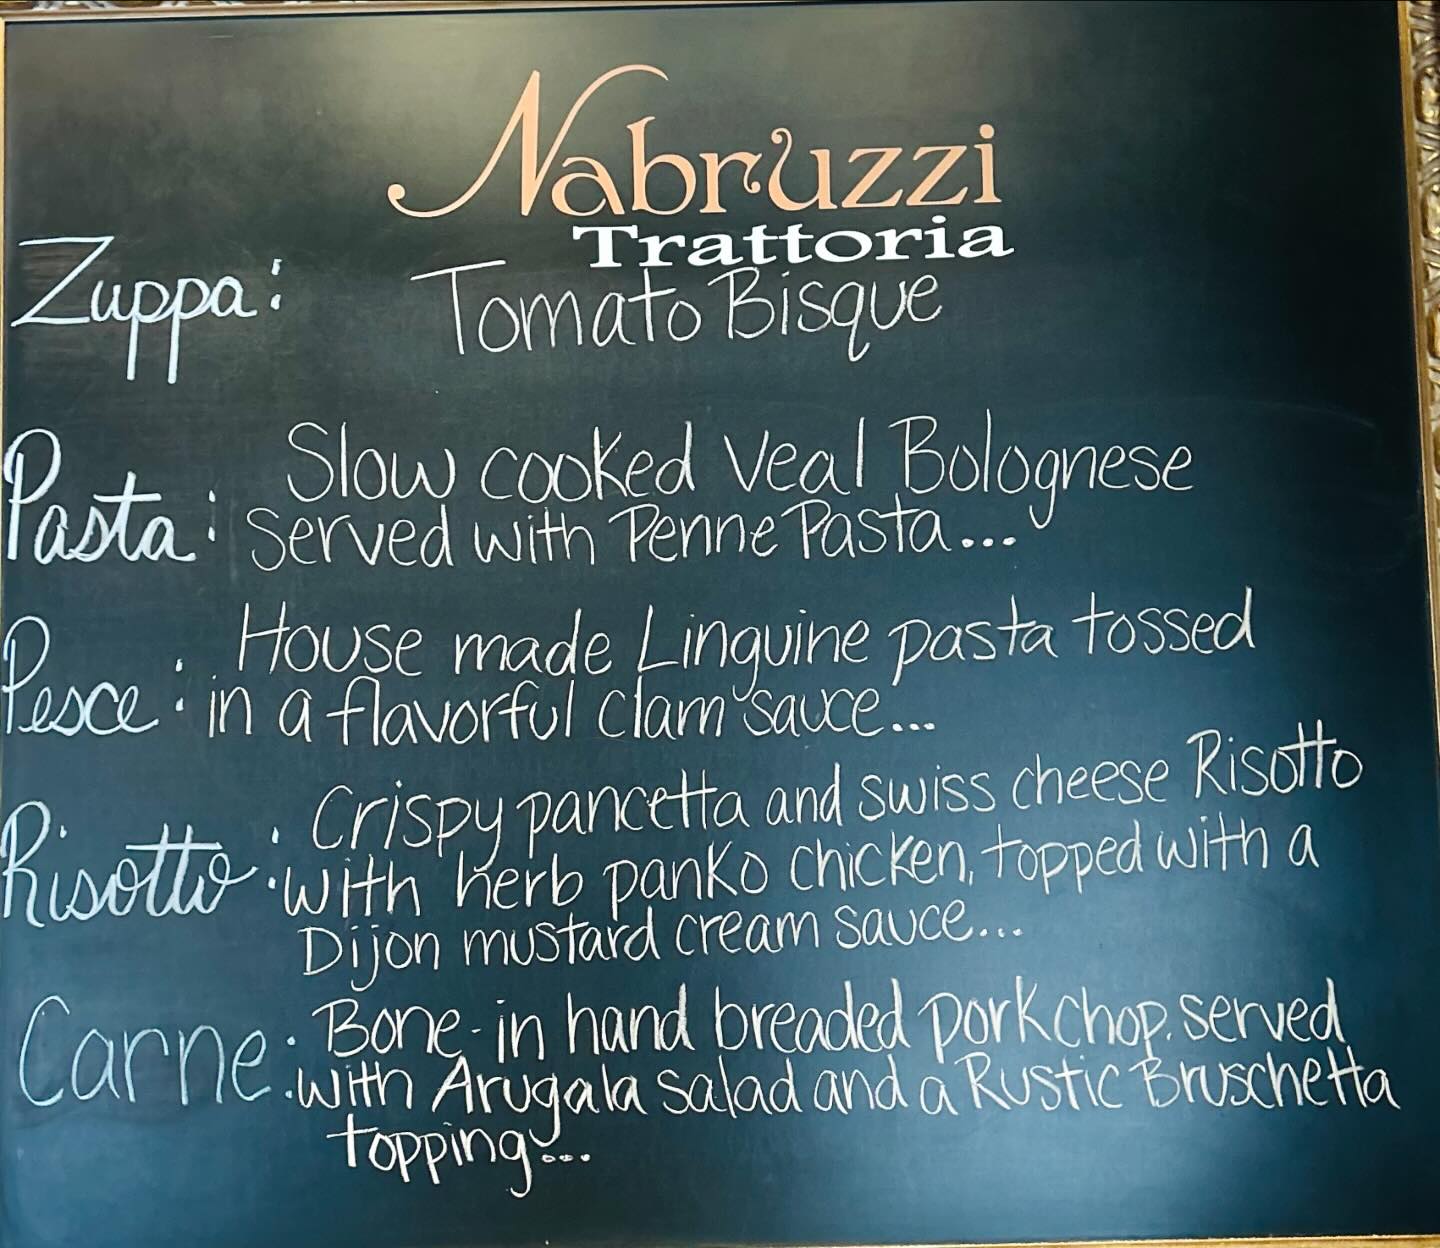 Nabruzzi
Trattoria
Zuppa: Tomato Bisque
Pasta: Slow cooked Veal Bolognese
served with Penne Pasta...
Pesce: House made Linguine pasta tossed
in a flavorful clam sauce...
Risotto: Crispy pancetta and swiss cheese Risotto
with herb panko chicken, topped with a
Dijon mustard cream sauce...
Carne: Bone-in hand breaded porkchop, served
with Arugala salad and a Rustic Bruschetta
topping...